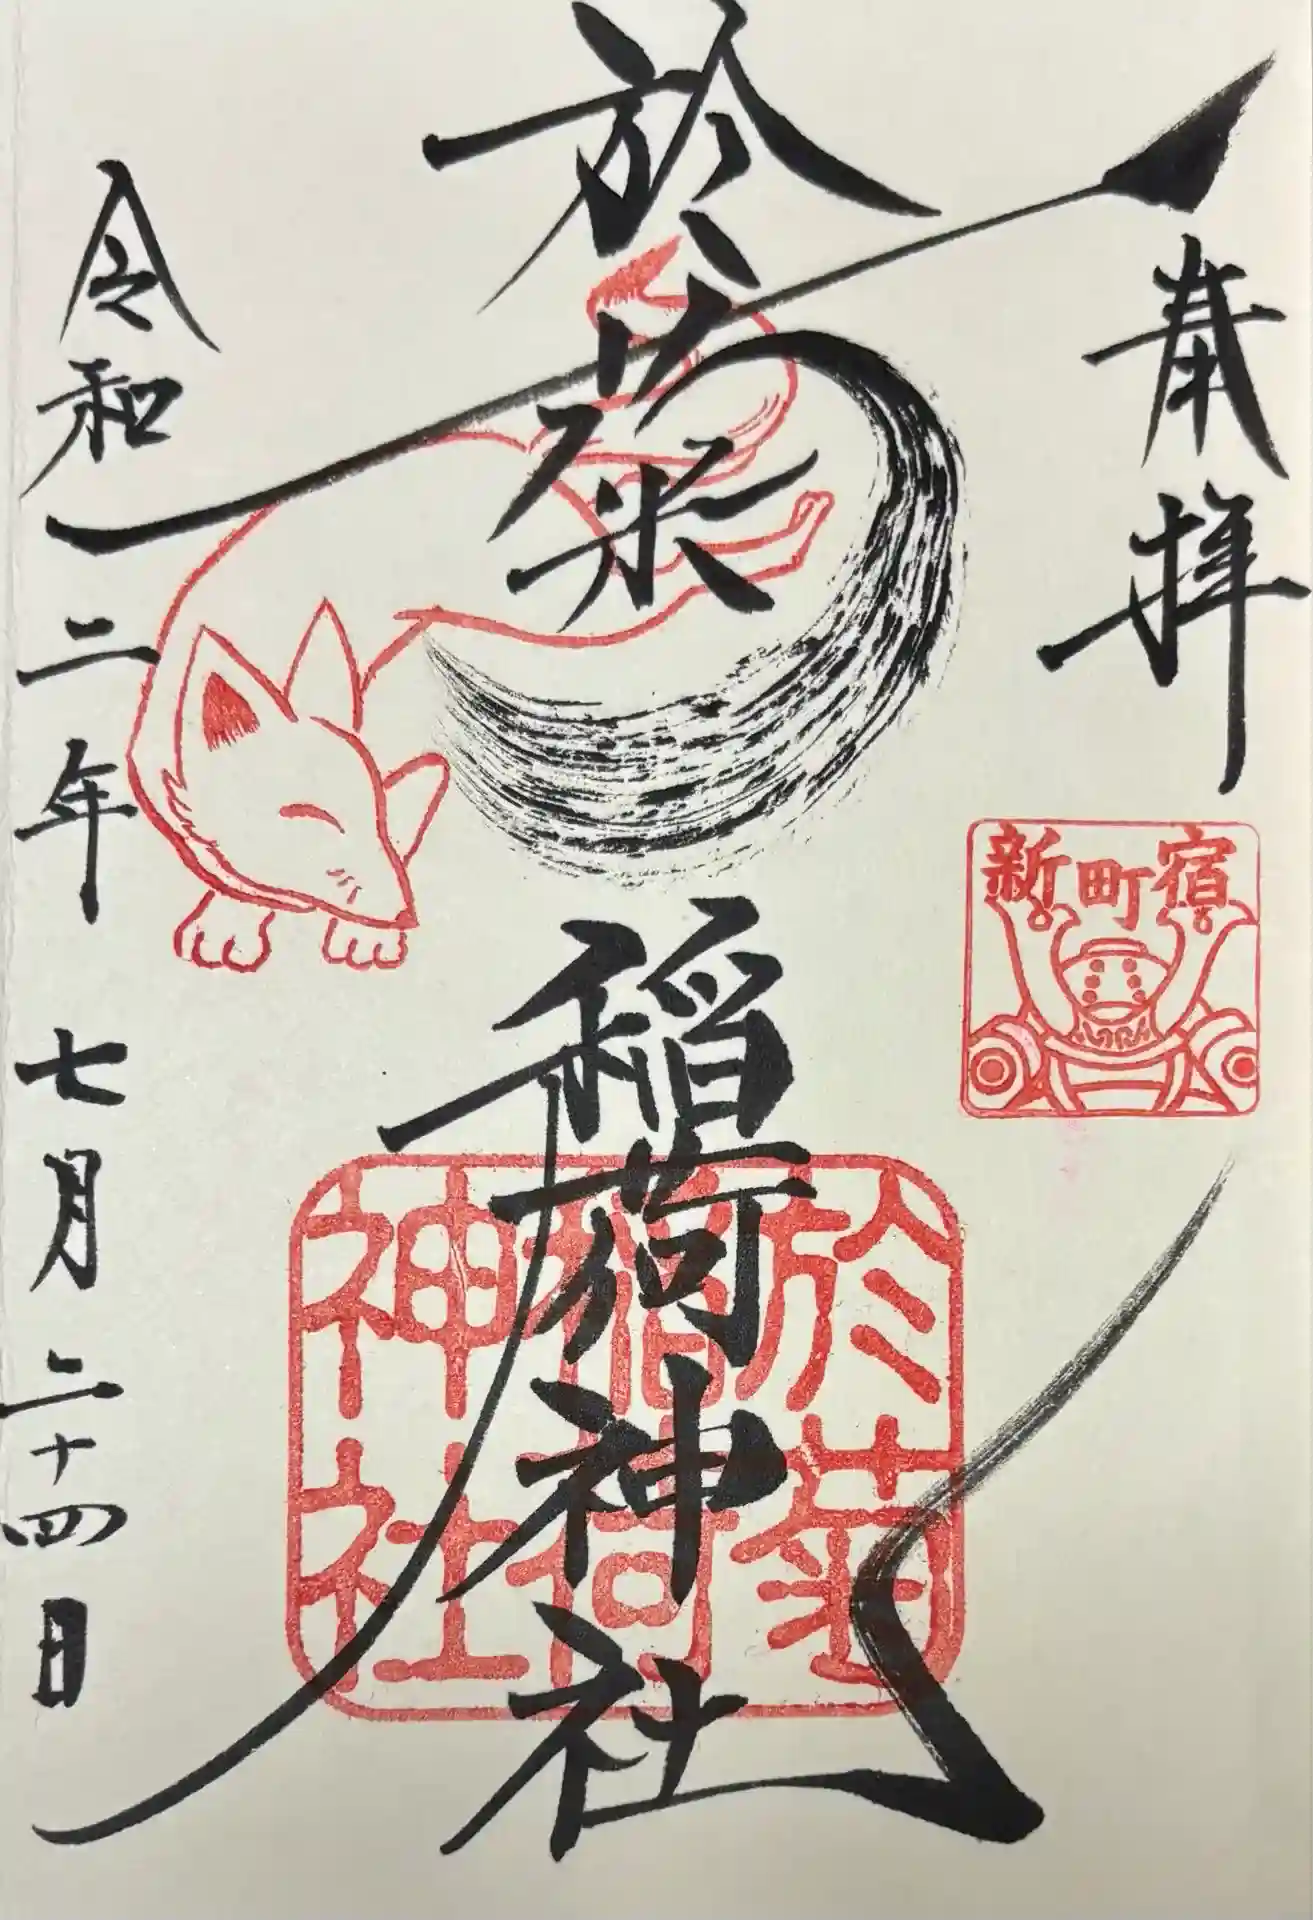 奉拝
新町宿
於菊稲荷神社
於菊
稲荷
神社
令和二年 七月二十四日